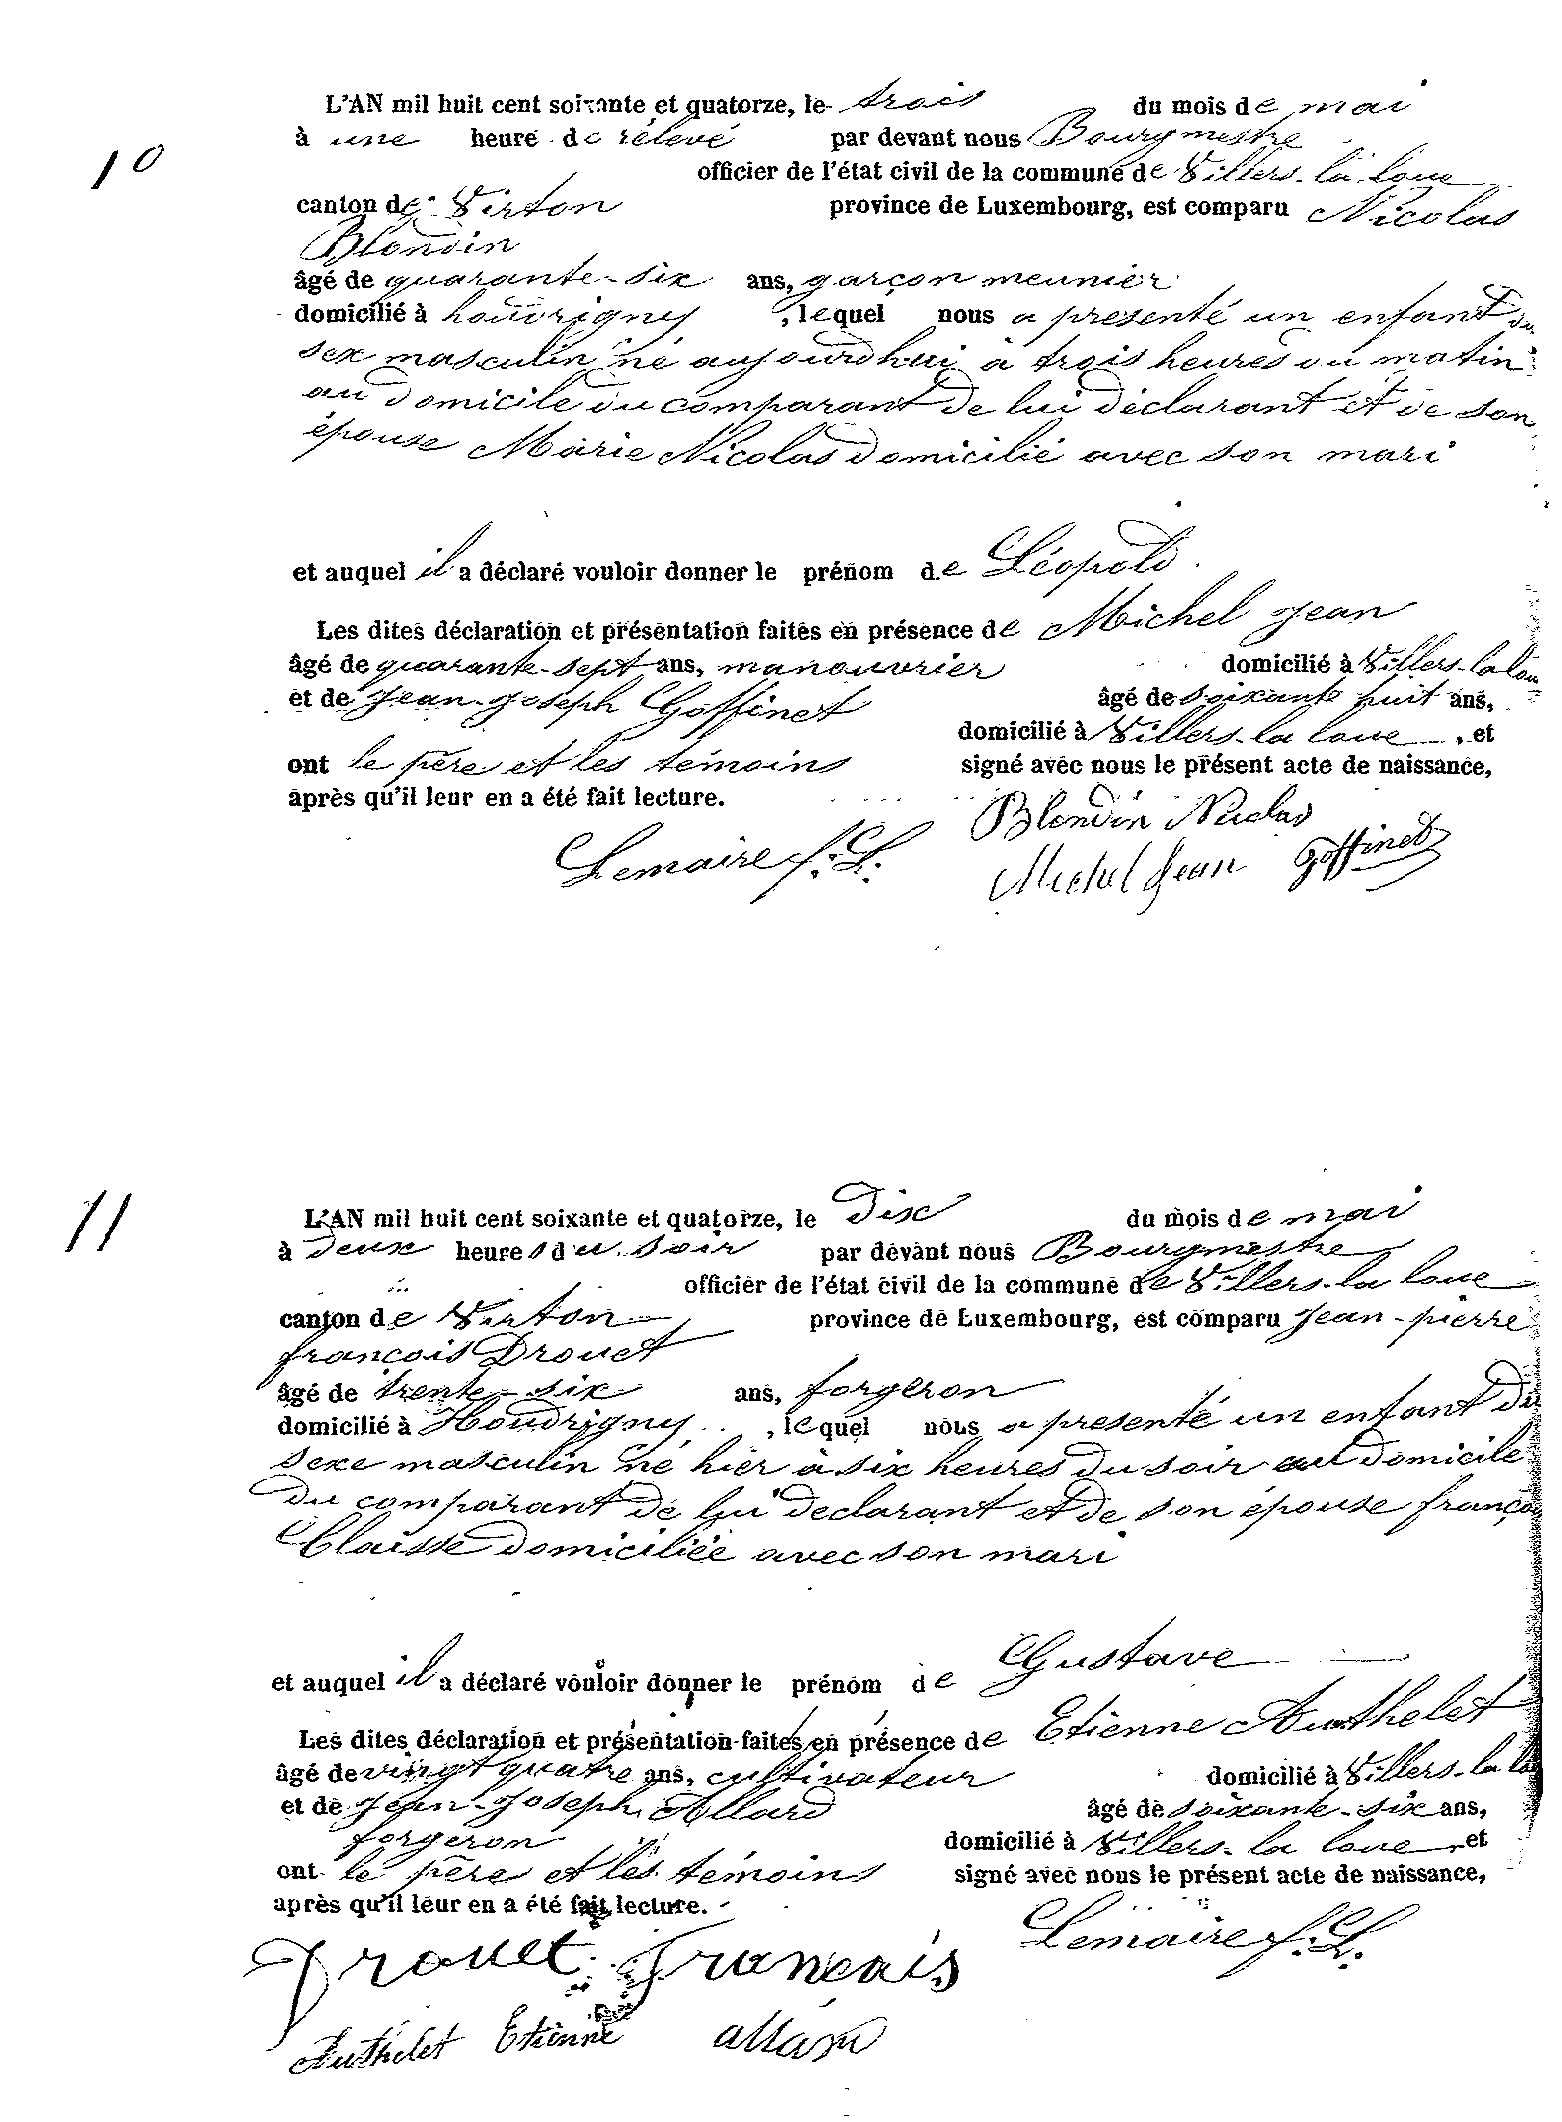 10
L'AN mil huit cent soixante et quatorze, le trois du mois de mai
à une heure de rélevé par devant nous Bourgmestre
officier de l'état civil de la commune de Villers-la-loue
canton de Virton province de Luxembourg, est comparu Nicolas
Blondin
âgé de quarante-six ans, garçon meunier
domicilié à houdrigny, lequel nous a presenté un enfant du
sex masculin né aujourdhui à trois heures du matin
au domicile du comparant de lui déclarant et de son
épouse Marie Nicolas domicilié avec son mari
et auquel il a déclaré vouloir donner le prénom de Léopold.
Les dites déclaration et présentation faites en présence de Michel Jean
âgé de quarante-sept ans, manouvrier domicilié à Villers-la lou
et de Jean-Joseph Goffinet âgé de soixante huit ans,
domicilié à Villers-la loue, et
ont le père et les témoins signé avec nous le présent acte de naissance,
après qu'il leur en a été fait lecture.
Blondin Nicolas
Lemaire f: L: Michel Jean Goffinet
11
L'AN mil huit cent soixante et quatorze, le Dix du mois de mai
à Deux heures du soir par devant nous Bourgmestre
officier de l'état civil de la commune de Villers-la loue
canton de Virton province de Luxembourg, est comparu Jean-pierre
françois Drouet
âgé de trente-six ans, forgeron
domicilié à Houdrigny, lequel nous a presenté un enfant du
sexe masculin né hier à six heures du soir au domicile
du comparant de lui declarant et de son épouse françoi
Claisse domiciliée avec son mari
et auquel il a déclaré vouloir donner le prénom de Gustave
Les dites déclaration et présentation faites en présence de Etienne Authelet
âgé de vingt quatre ans, cultivateur domicilié à Villers-la lo
et de Jean-Joseph Allard âgé de soixante-six ans,
forgeron domicilié à Villers-la loue et
ont le père et les témoins signé avec nous le présent acte de naissance,
après qu'il leur en a été fait lecture.
Lemaire f: L:
Drouet françois
Authelet Etienne allard